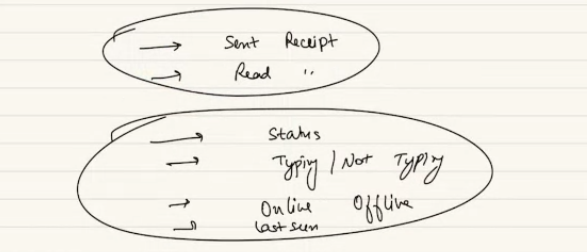 → Sent Receipt
→ Read "
→ Status
→ Typing / Not Typing
→ Online Offline
→ last seen